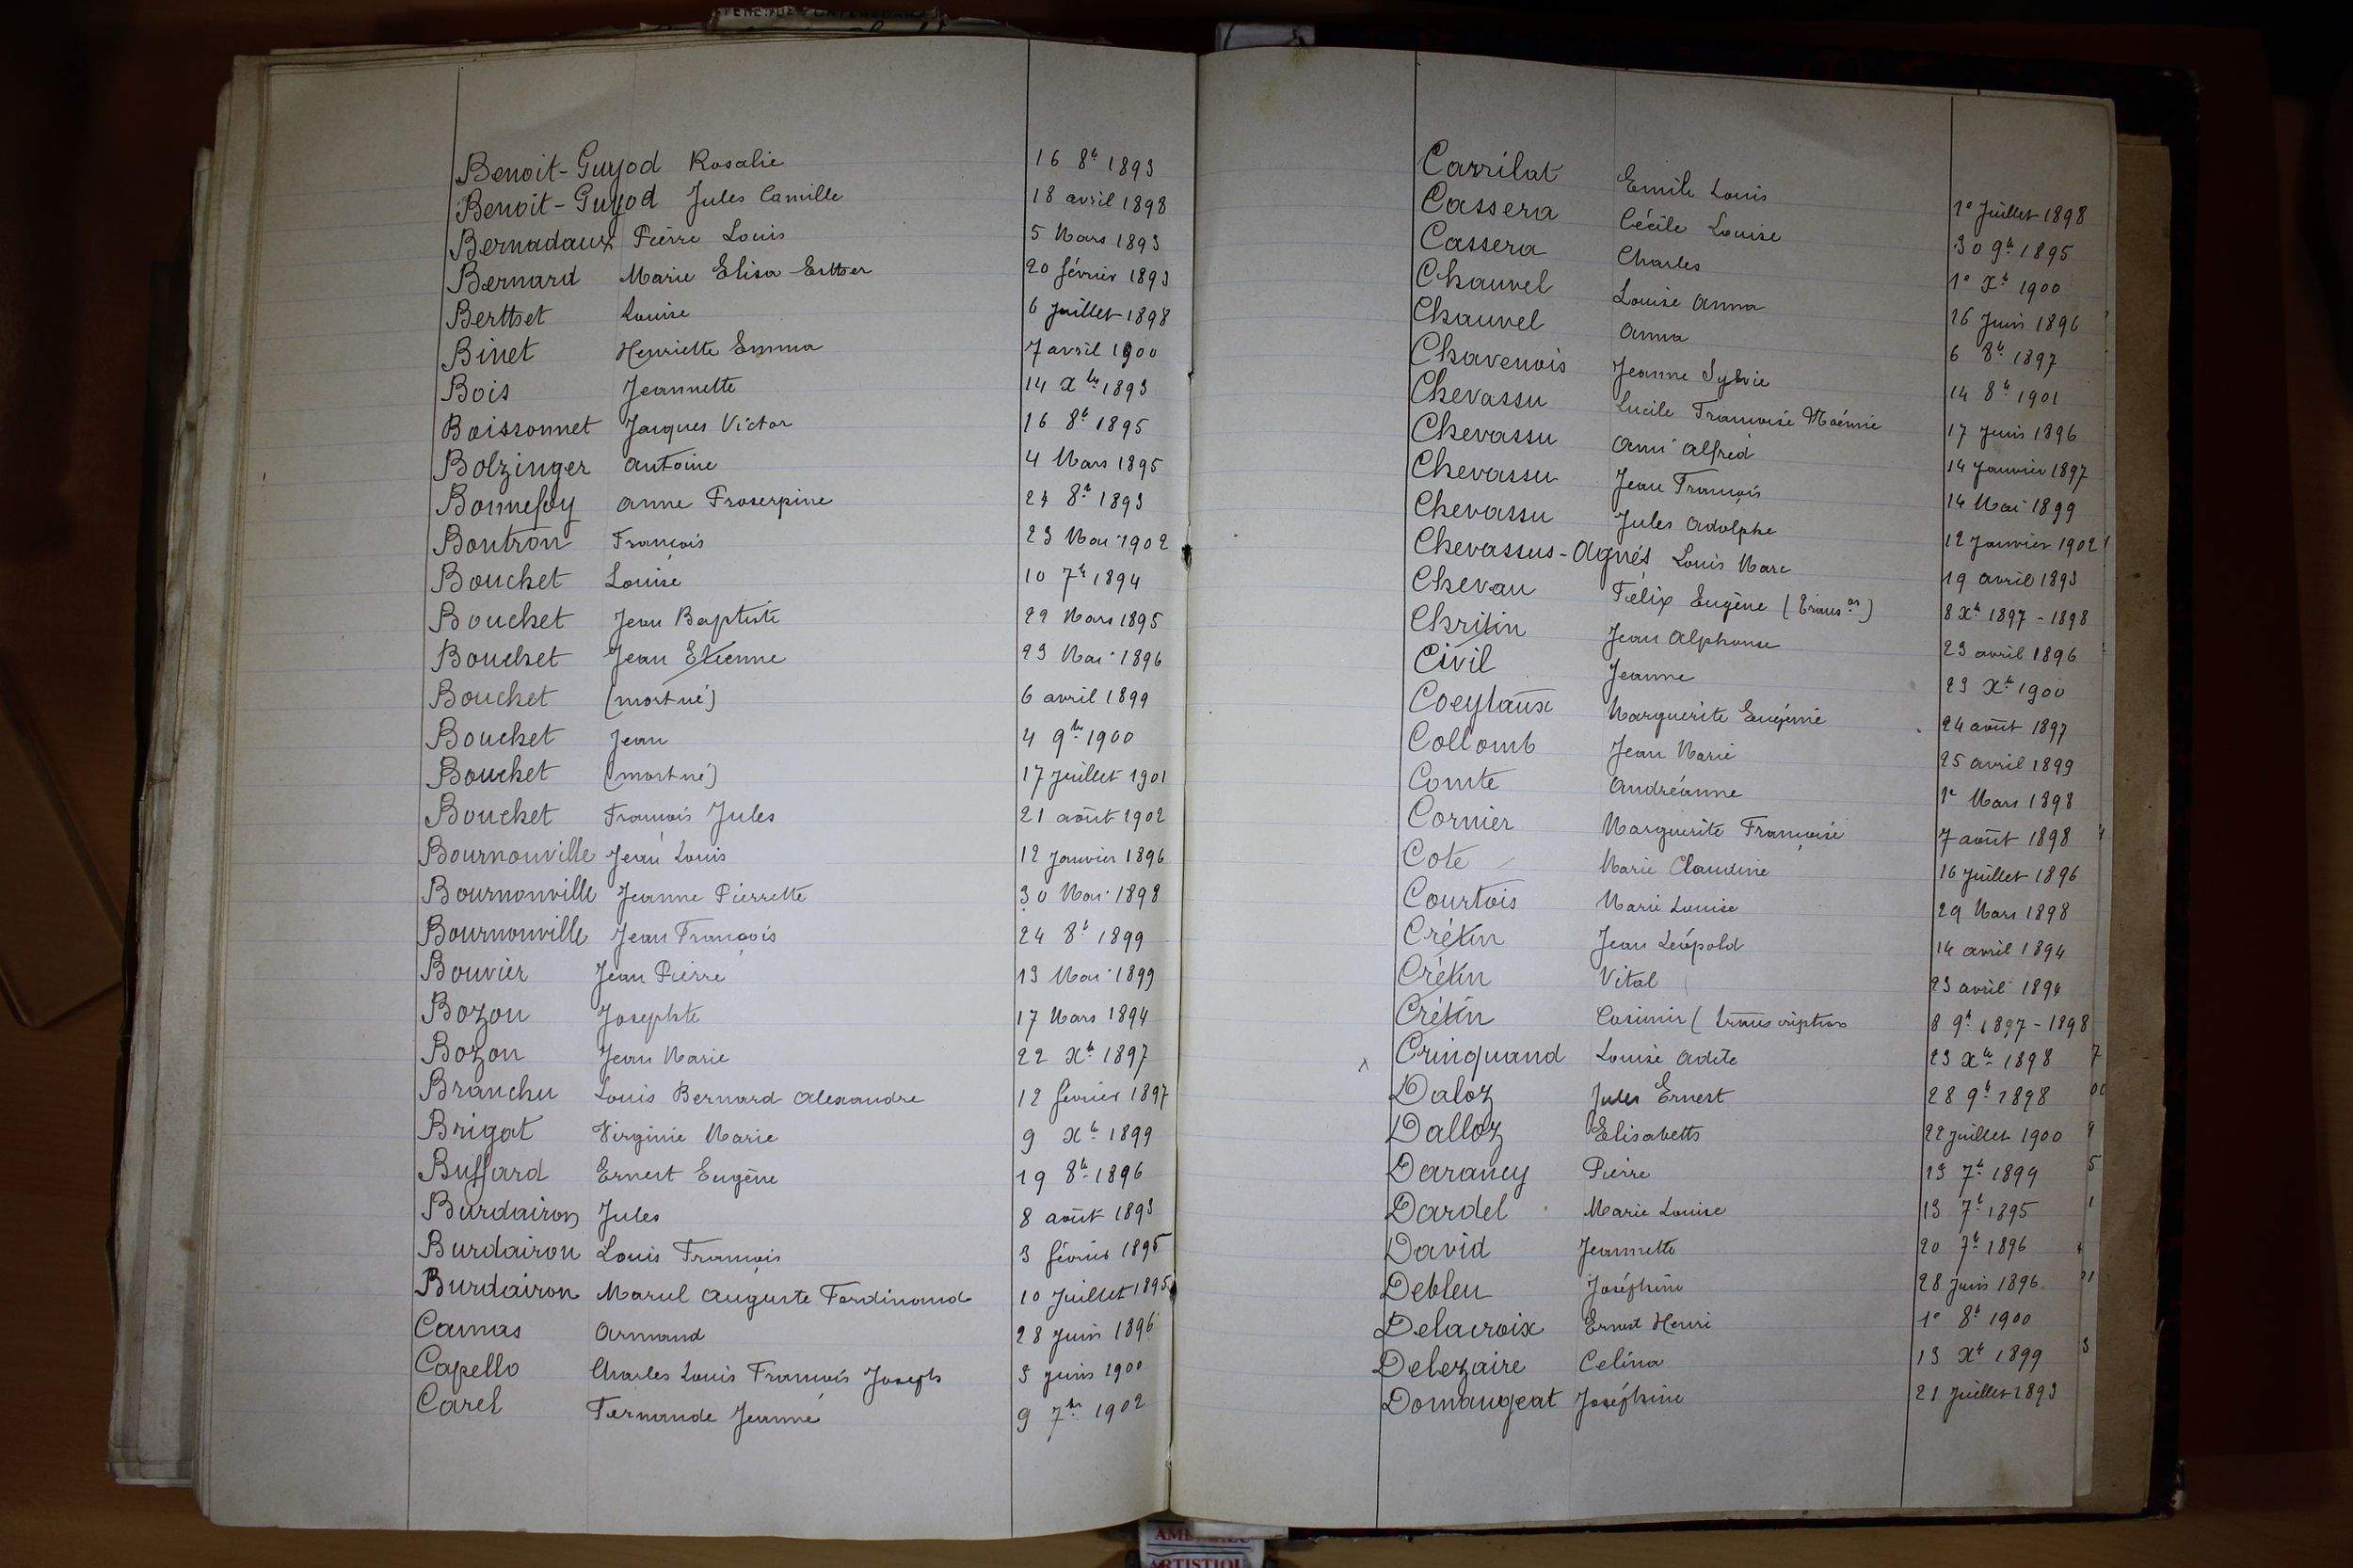 Benoit-Guyod Rosalie 16 8b 1893
Benoit-Guyod Jules Camille 18 avril 1898
Bernadaux Pierre Louis 5 Mars 1893
Bernard Marie Elisa Esther 20 février 1893
Berthet Louise 6 Juillet 1898
Binet Henriette Emma 7 avril 1900
Bois Jeannette 14 Xbre 1893
Boissonnet Jacques Victor 16 8b 1895
Bolzinger Antoine 4 Mars 1895
Bonnefoy Anne Proserpine 27 8b 1893
Boutron François 23 Mai 1902
Bouchet Louise 10 7b 1894
Bouchet Jean Baptiste 22 Mars 1895
Bouchet Jean Etienne 23 Mai 1896
Bouchet (mort né) 6 avril 1899
Bouchet Jean 4 9bre 1900
Bouchet (mort né) 17 Juillet 1901
Bouchet François Jules 21 août 1902
Bournonville Jean Louis 12 Janvier 1896
Bournonville Jeanne Pierrette 30 Mai 1898
Bournonville Jean François 24 8b 1899
Bouvier Jean Pierre 13 Mai 1899
Bozon Josephte 17 Mars 1894
Bozon Jean Marie 22 Xb 1897
Branchu Louis Bernard Alexandre 12 février 1897
Brigat Virginie Marie 9 Xb 1899
Buffard Ernest Eugène 19 8b 1896
Burdairon Jules 8 août 1893
Burdairon Louis François 3 février 1895
Burdairon Marcel Auguste Ferdinand 10 Juillet 1895
Camas Armand 28 Juin 1896
Capello Charles Louis François Joseph 3 Juin 1900
Carel Fernande Jeanne 9 7bre 1902
Carrilat Emile Louis 1° Juillet 1898
Cassera Cécile Louise 30 9b 1895
Cassera Charles 1° Xb 1900
Chauvel Louise Anna 26 Juin 1896
Chauvel Anna 6 8b 1897
Chavenois Jeanne Sylvie 14 8b 1901
Chevassu Lucile Françoise Noémie 17 Juin 1896
Chevassu Ami Alfred 14 Janvier 1897
Chevassu Jean François 14 Mai 1899
Chevassu Jules Adolphe 12 Janvier 1902
Chevassus-Agnés Louis Marc 19 avril 1893
Chevau Félix Eugène (Trans on) 8 Xb 1897-1898
Chritin Jean Alphonse 23 avril 1896
Civil Jeanne 23 Xb 1900
Coeytaux Marguerite Eugénie 24 août 1897
Collomb Jean Marie 25 avril 1899
Comte Andréanne 1e Mars 1898
Cornier Marguerite Françoise 7 août 1898
Cote Marie Claudine 16 Juillet 1896
Courtois Marie Louise 29 Mars 1898
Crétin Jean Léopold 14 avril 1894
Crétin Vital 23 avril 1894
Crétin Casimir (transcription 8 9b 1897-1898
Crinquand Louise Adèle 23 Xbre 1898
Daloz Jules Ernest 28 9b 1898
Dalloz Elisabeth 22 Juillet 1900
Darancy Pierre 13 7b 1899
Dardel Marie Louise 13 7b 1895
David Jeannette 20 7b 1896
Debleu Joséphine 28 Juin 1896
Delacroix Ernest Henri 1° 8b 1900
Delezaire Celina 13 Xb 1899
Domangeat Joséphine 21 Juillet 1893